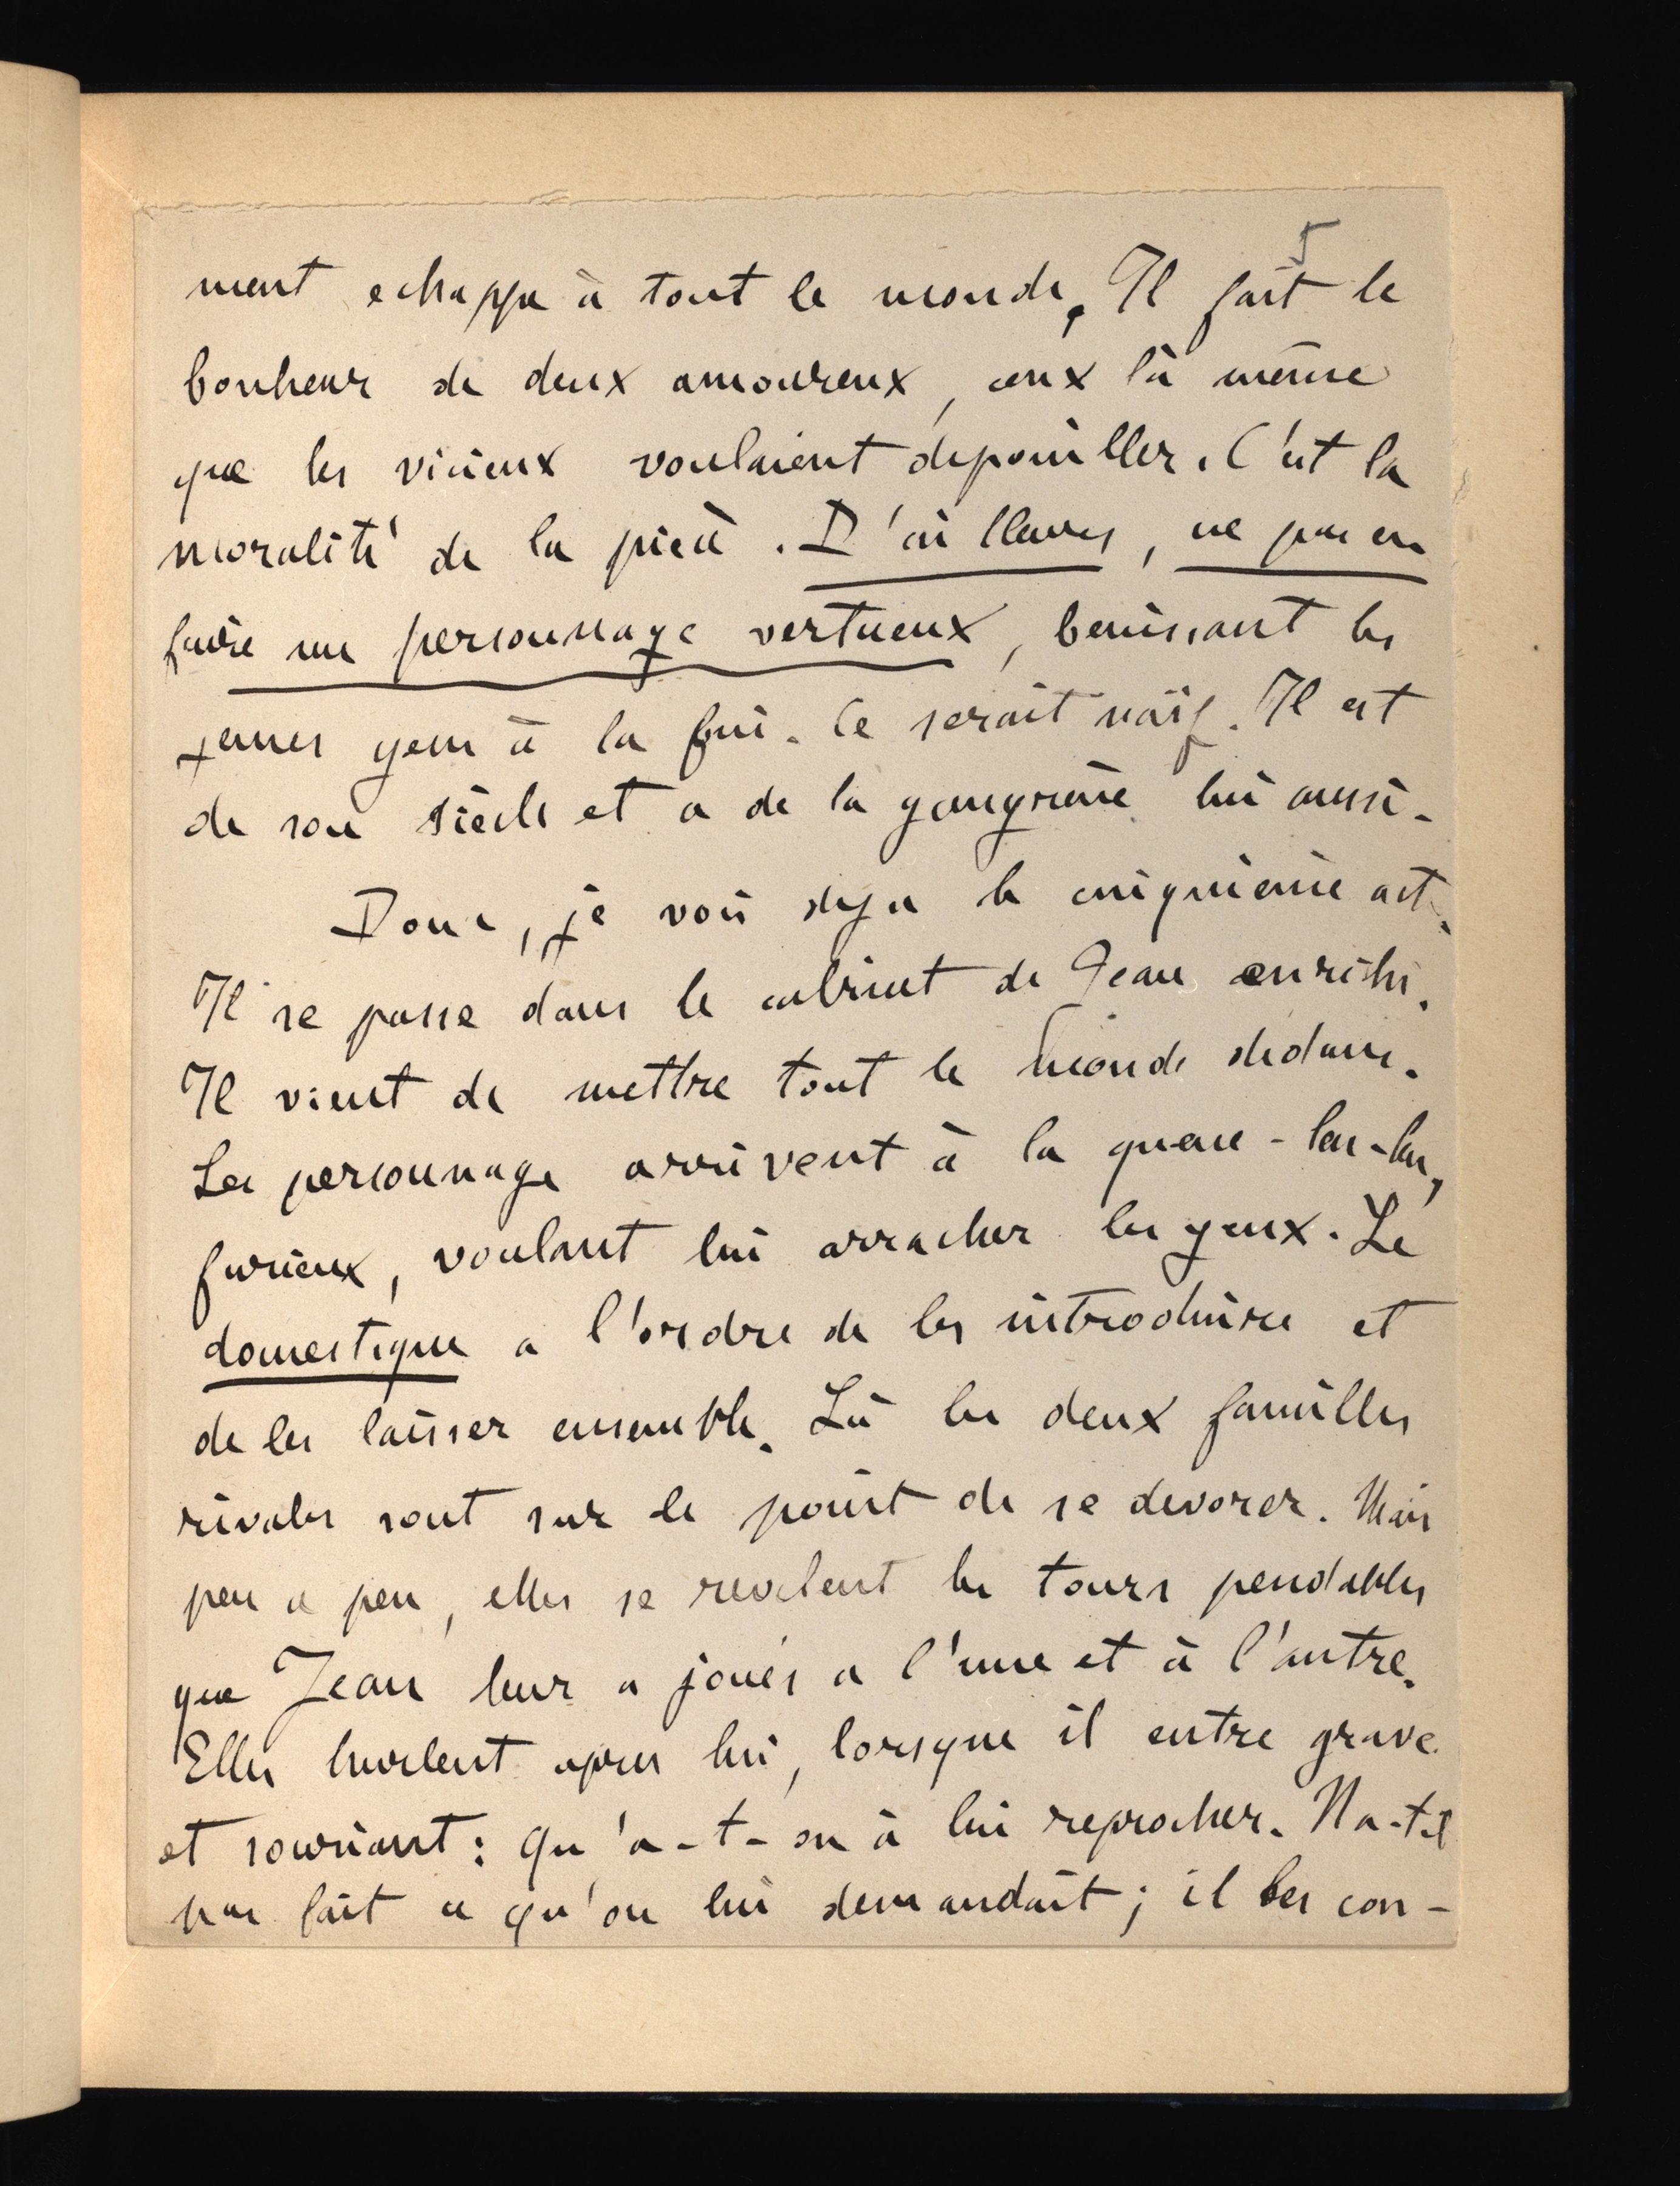 5
ment echappe à tout le monde. Il fait le
bonheur de deux amoureux, ceux là même
que les vicieux voulaient depouiller. C'est la
moralité de la pièce. D'ailleurs, ne pas en
faire un personnage vertueux, benissant les
jeunes gens à la fin. Ce serait naïf. Il est
de son siècle et a de la gangrène lui aussi.
Donc, je vois deja le cinquième acte.
Il se passe dans le cabinet de Jean enrichi.
Il vient de mettre tout le monde dedans.
Les personnages arrivent à la queue-leu-leu,
furieux, voulant lui arracher les yeux. Le
domestique a l'ordre de les introduire et
de les laisser ensemble. Là les deux familles
rivales sont sur le point de se devorer. Mais
peu a peu, elles se revelent les tours pendables
que Jean leur a joués a l'une et à l'autre.
Elles hurlent apres lui, lorsque il entre grave
et souriant: qu'a-t-on à lui reprocher. N'a-t-il
pas fait ce qu'on lui demandait; il les con-